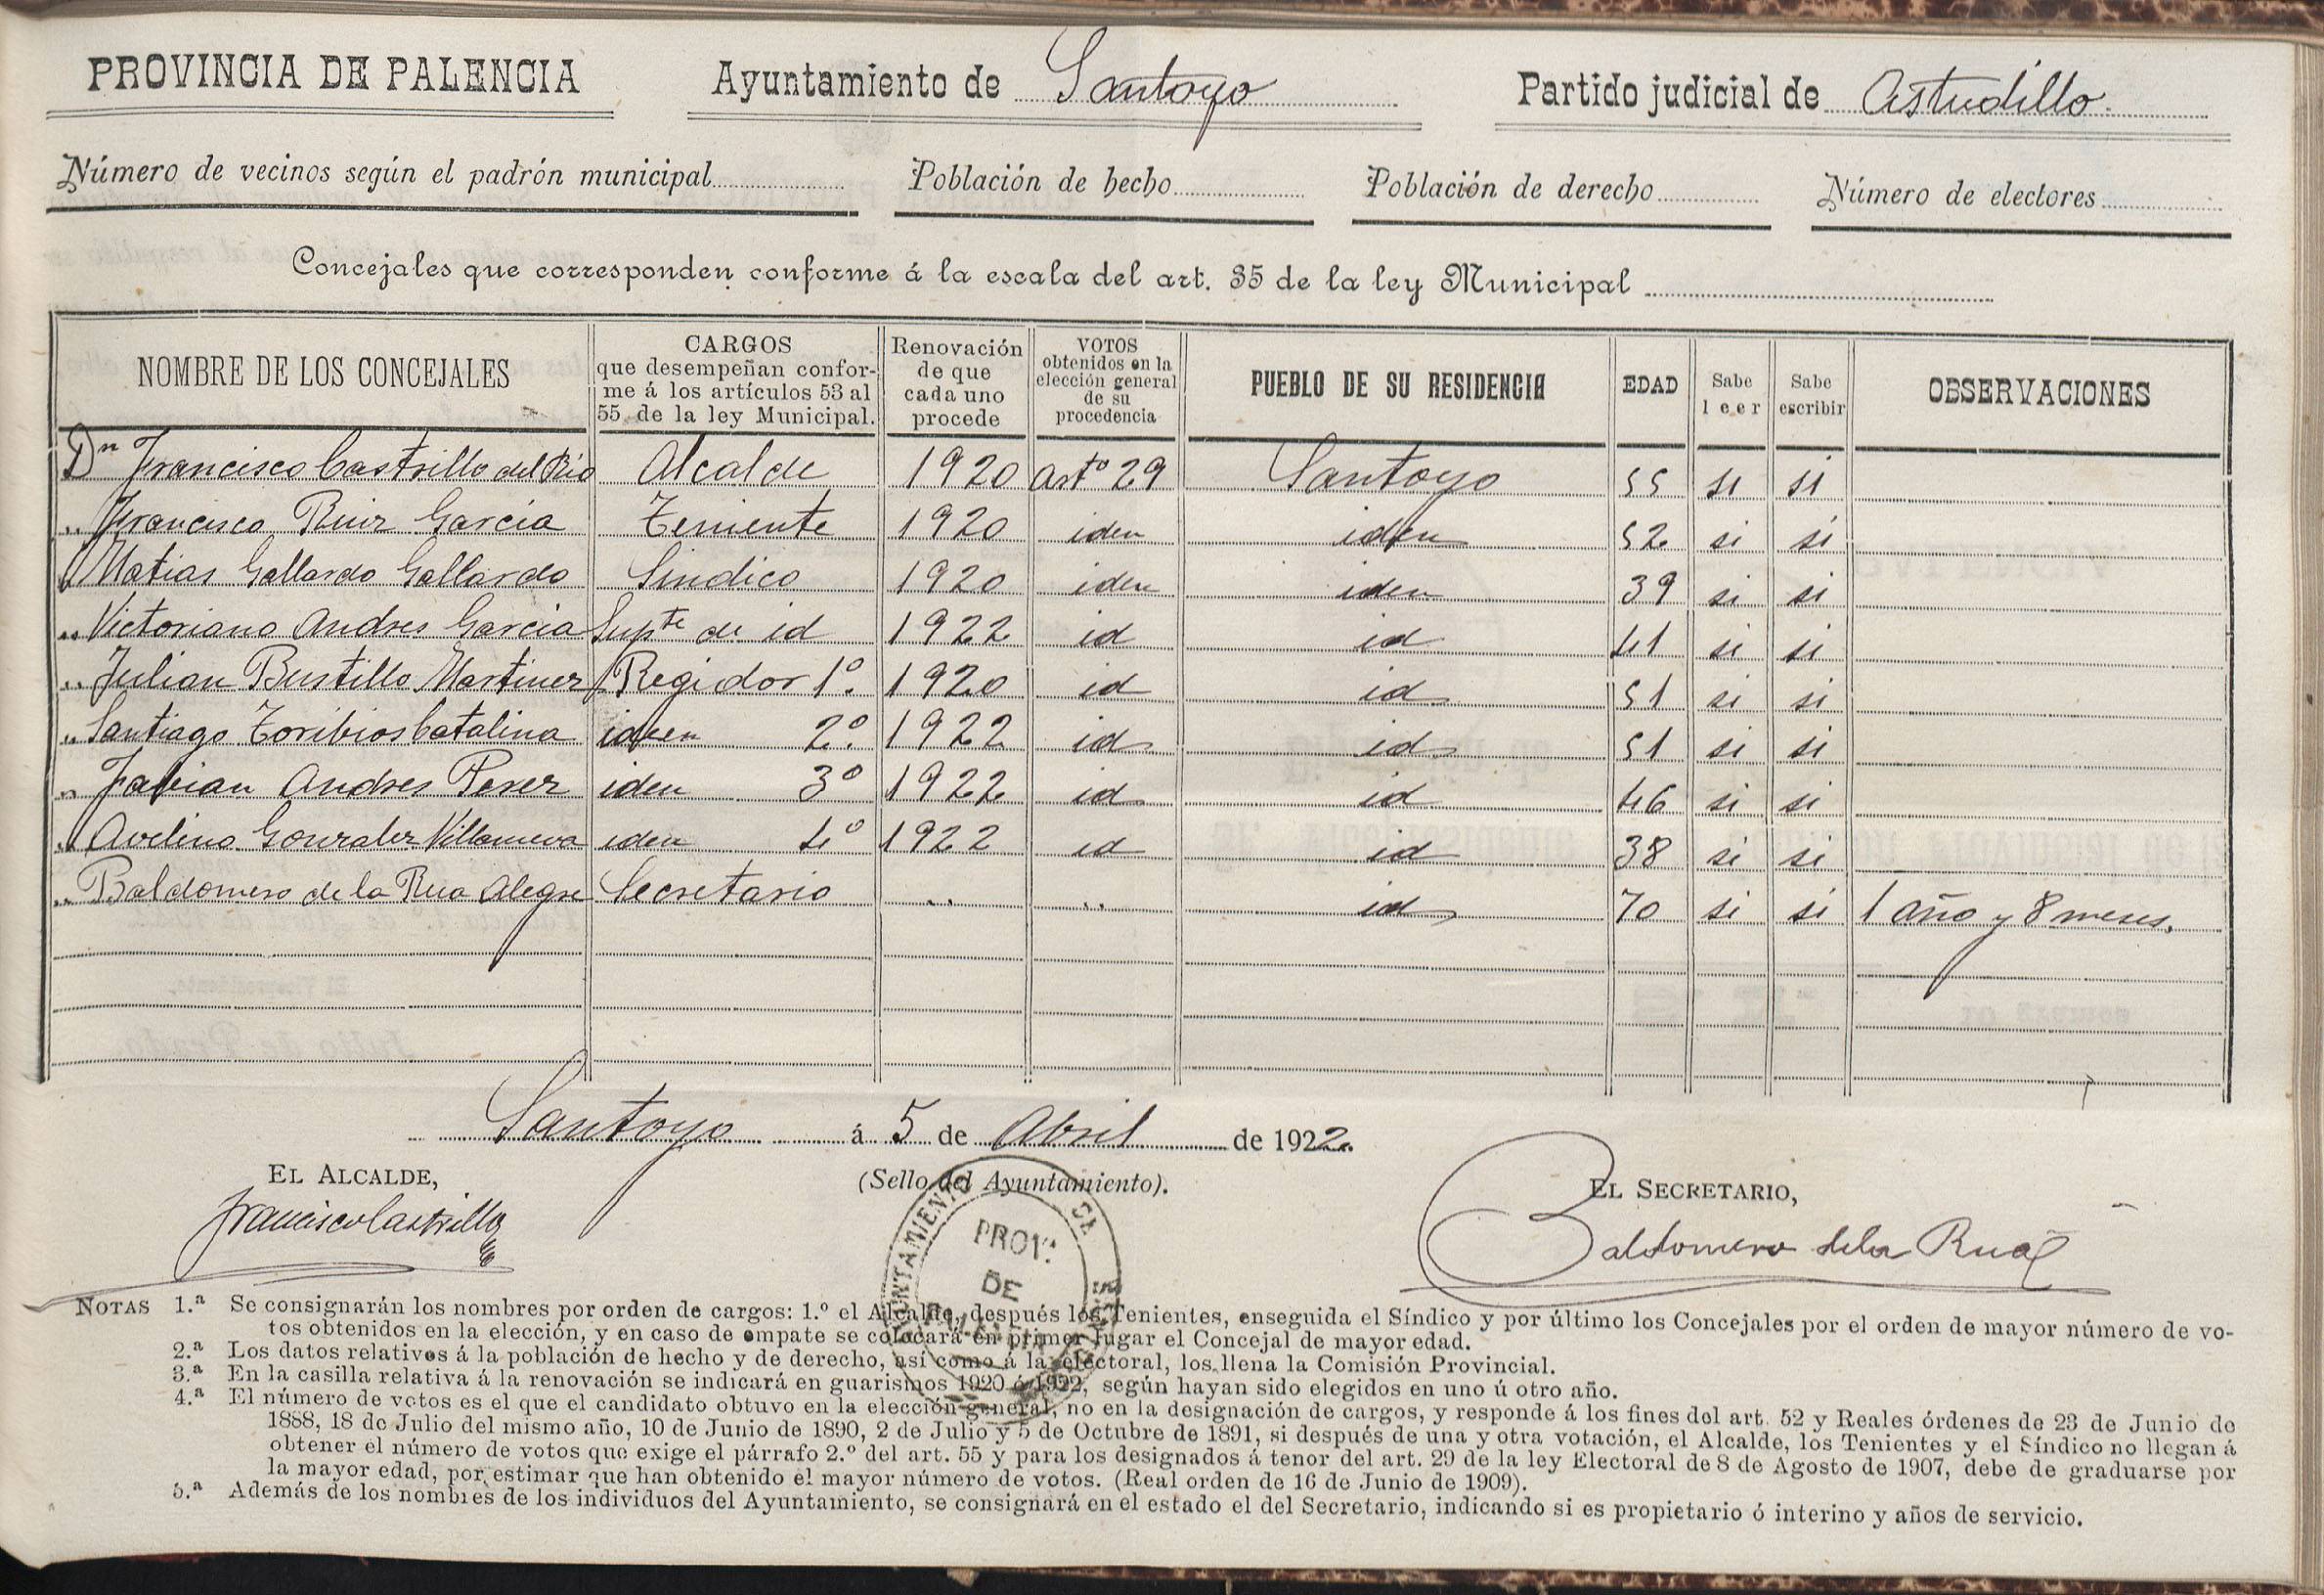 PROVINCIA DE PALENCIA Ayuntamiento de Santoyo Partido judicial de Astudillo
Número de vecinos según el padrón municipal Población de hecho Población de derecho Número de electores
Concejales que corresponden conforme á la escala del art. 35 de la ley Municipal
NOMBRE DE LOS CONCEJALES
CARGOS
que desempeñan confor-
me á los artículos 53 al
55 de la ley Municipal.
Renovación
de que
cada uno
procede
VOTOS
obtenidos en la
elección general
de su
procedencia
PUEBLO DE SU RESIDENCIA
EDAD
Sabe
leer
Sabe
escribir
OBSERVACIONES
Dn Francisco Castrillo del Río Alcalde 1920 artº 29 Santoyo 55 si si
„ Francisco Ruiz García Teniente 1920 iden iden 52 si si
„ Matias Gallardo Gallardo Sindico 1920 iden iden 39 si si
„ Victoriano Andres Garcia Supte de id 1922 id id 41 si si
„ Julian Bustillo Martinez Regidor 1º. 1920 id id 51 si si
„ Santiago Toribios Catalina iden 2º. 1922 id id 51 si si
„ Fabian Andres Perez iden 3º 1922 id id 46 si si
„ Avelino Gonzalez Villanueva iden 4º 1922 id id 38 si si
„ Baldomero de la Rua Alegre Secretario „ „ id 70 si si 1 año y 8 meses.
Santoyo á 5 de Abril de 1922.
EL ALCALDE, (Sello del Ayuntamiento). EL SECRETARIO,
Francisco Castrillo Baldomero de la Rua
AYUNTAMIENTO DE
PROV.
DE
NOTAS 1.ª Se consignarán los nombres por orden de cargos: 1.º el Alcalde, después los Tenientes, enseguida el Síndico y por último los Concejales por el orden de mayor número de vo-
tos obtenidos en la elección, y en caso de empate se colocará en primer lugar el Concejal de mayor edad.
2.ª Los datos relativos á la población de hecho y de derecho, así como á la electoral, los llena la Comisión Provincial.
3.ª En la casilla relativa á la renovación se indicará en guarismos 1920 ó 1922, según hayan sido elegidos en uno ú otro año.
4.ª El número de votos es el que el candidato obtuvo en la elección general, no en la designación de cargos, y responde á los fines del art. 52 y Reales órdenes de 23 de Junio de
1888, 18 de Julio del mismo año, 10 de Junio de 1890, 2 de Julio y 5 de Octubre de 1891, si después de una y otra votación, el Alcalde, los Tenientes y el Síndico no llegan á
obtener el número de votos que exige el párrafo 2.º del art. 55 y para los designados á tenor del art. 29 de la ley Electoral de 8 de Agosto de 1907, debe de graduarse por
la mayor edad, por estimar que han obtenido el mayor número de votos. (Real orden de 16 de Junio de 1909).
5.ª Además de los nombres de los individuos del Ayuntamiento, se consignará en el estado el del Secretario, indicando si es propietario ó interino y años de servicio.